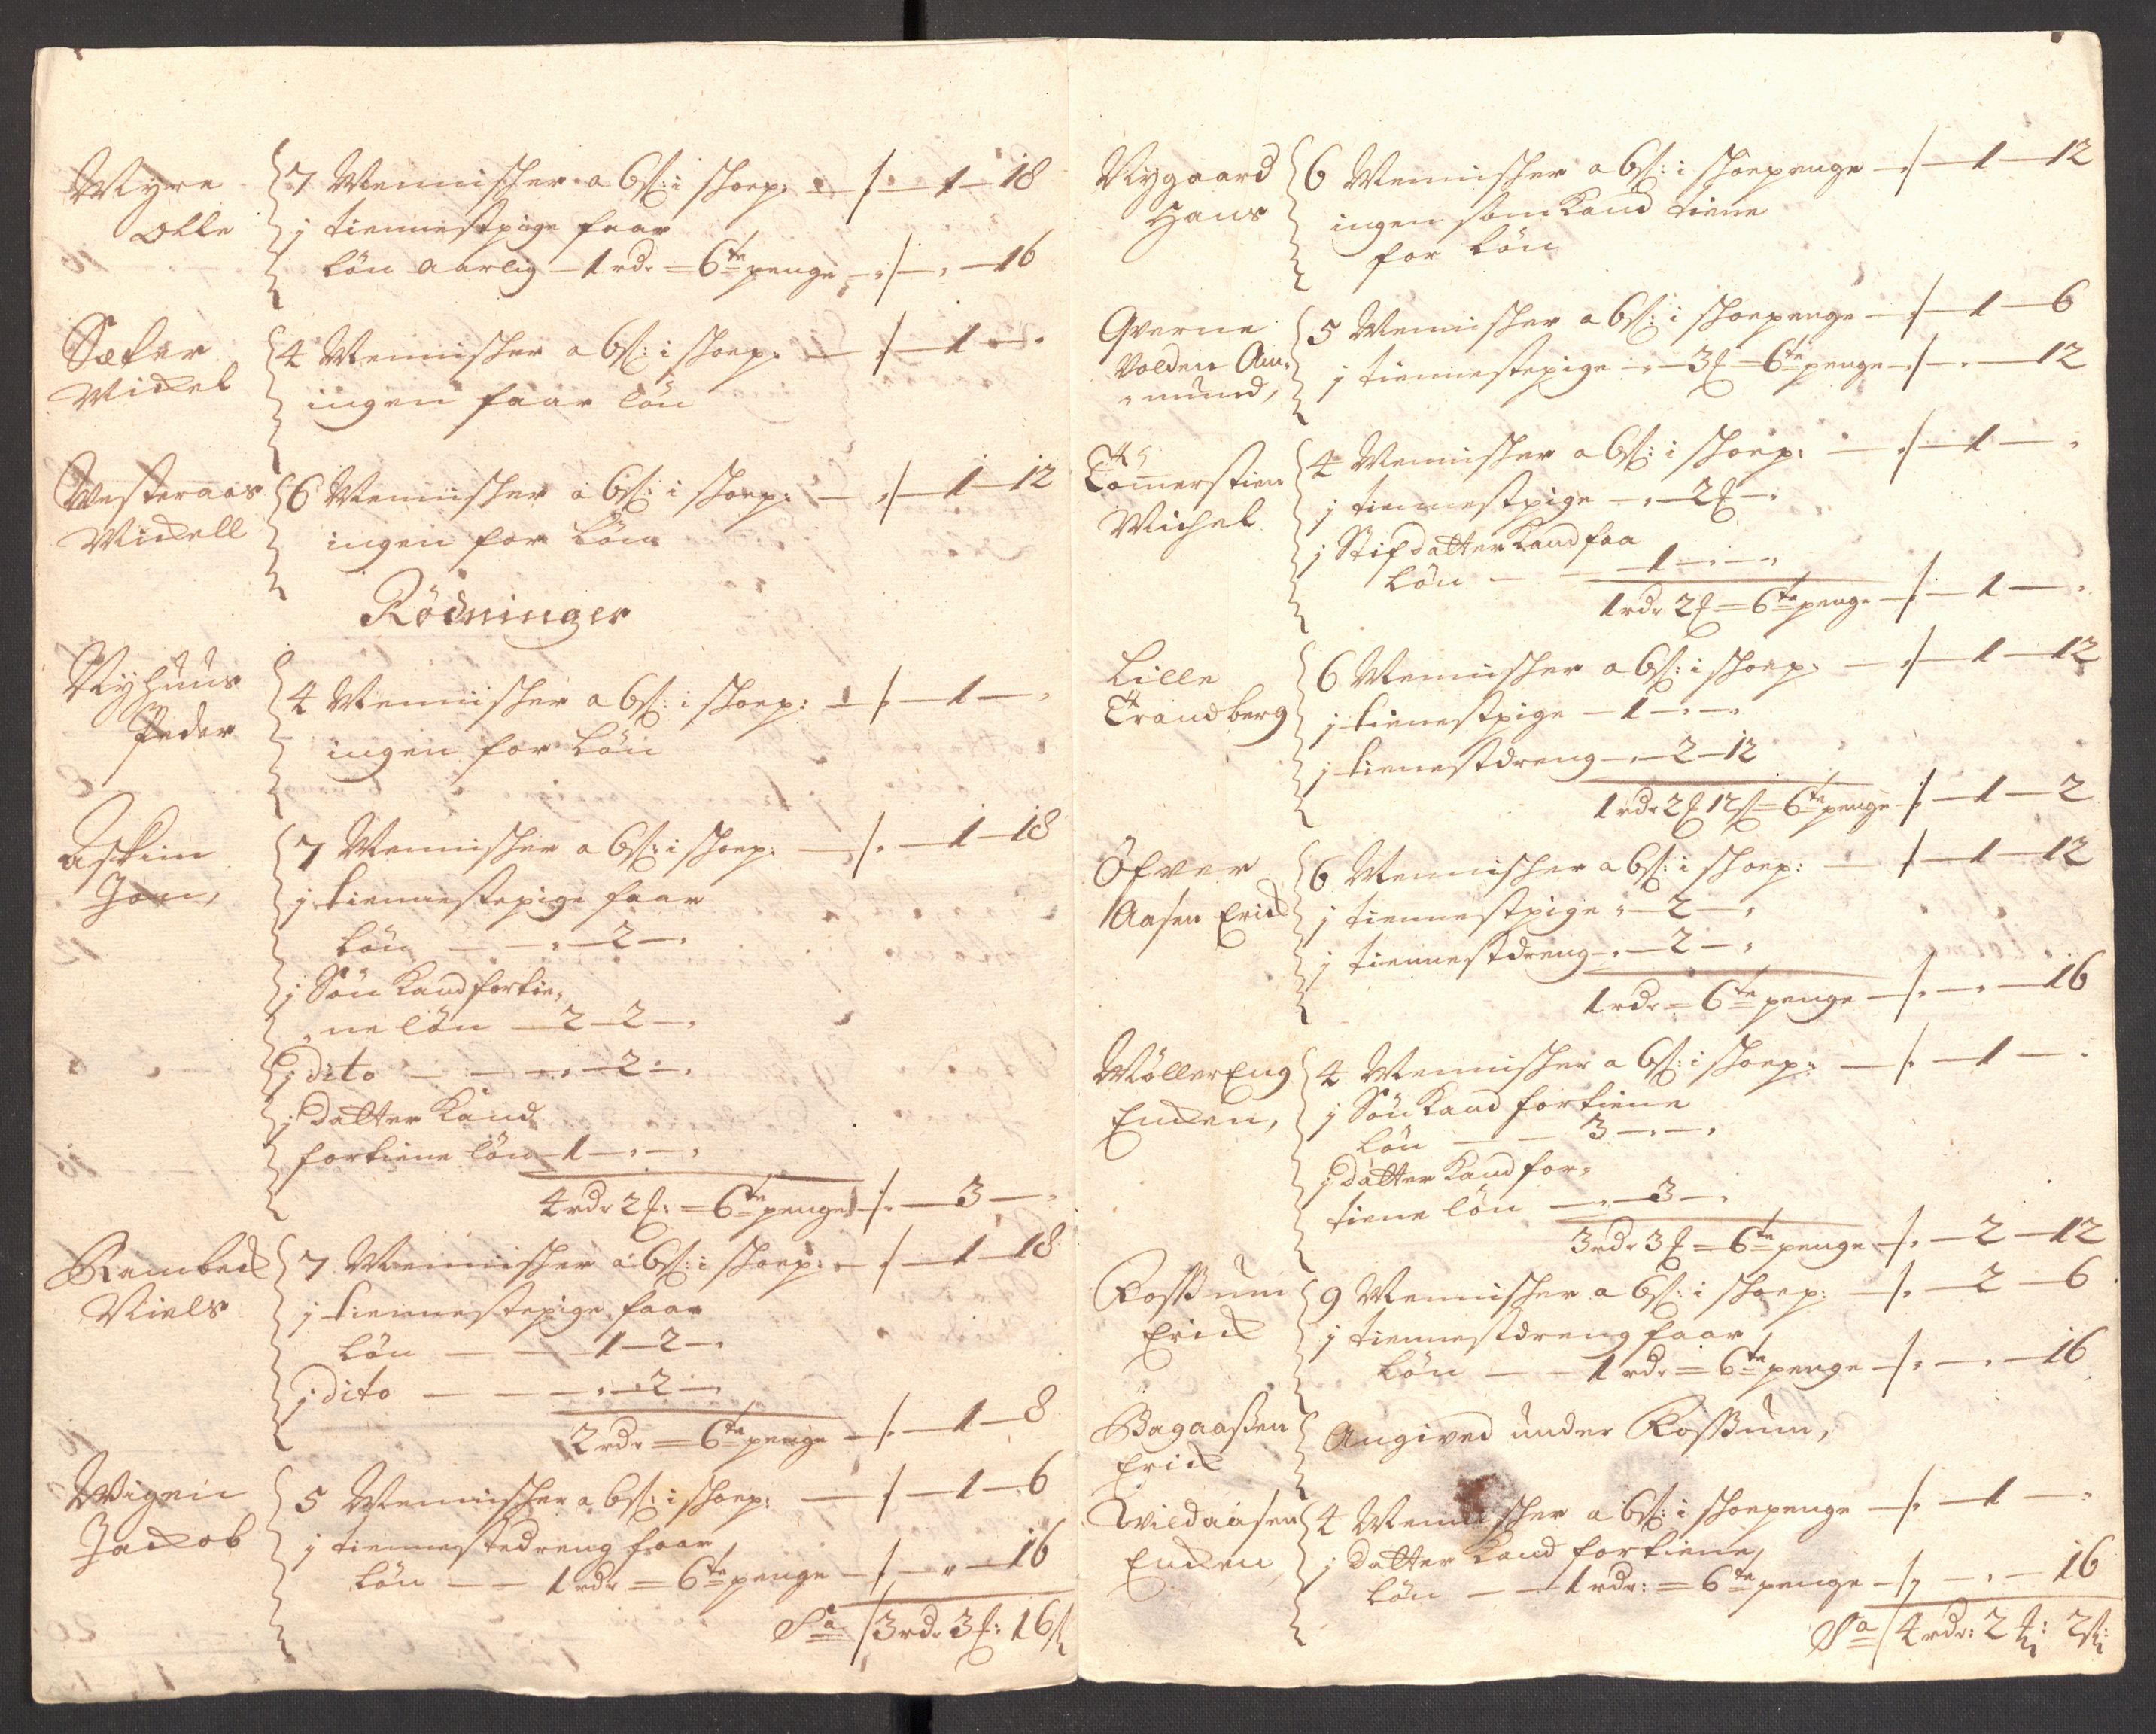 Myre
Olle
7 Mennisker a 6s: i skoep: — /. — 1 — 18
j tiennestpige faar
løn aarlig — 1 rdr = 6te penge — /. — " — 16
Sæter
Mickel
4 Mennisker a 6s: i skoep: — /. — 1 — "
ingen faar løn
Westeraas
Mickell
6 Mennisker a 6s: i skoep: — /. — 1 — 12
ingen for Løn
Rødninger
Nyhuus
Peder
4 Mennisker a 6s: i skoep: — /. — 1 — "
ingen for Løn
Askim
Joen,
7 Mennisker a 6s: i skoep: — /. — 1 — 18
j tiennestepige faar
Løn — — " — 2 — "
j Søn kand fortie„
„ne løn — 2 — 2 — "
j dito — — — " — 2 — "
j datter kand
fortiene løn — 1 — " — "
4 rdr 2 = 6te penge — /. — 3 — "
Rambeck
Niels
7 Mennisker a 6s: i skoep: — /. — 1 — 18
j tiennestepige faar
Løn — — 1 — 2 — "
j dito — — — " — 2 — "
2 rdr = 6te penge — /. — 1 — 8
Wigen
Jackob
5 Mennisker a 6s: i skoep: — /. — 1 — 6
j tiennestedreng faar
Løn — — 1 rdr = 6te penge — /. — " — 16
Sa / 3 rdr 3: 16s
Nygaard
Hans
6 Mennisker a 6s: i skoepenge — /. — 1 — 12
ingen som kand tiene
for Løn
Qverne
Volden Am„
„mund,
5 Mennisker a 6s: i skoepenge — /. — 1 — 6
j tiennestepige — " — 3 = 6te penge — /. — " — 12
Tømerstien
Michel
4 Mennisker a 6s: i skoep: — /. — 1 — "
j tiennestpige — " — 2 — "
j Stifdatter kand faa
Løn — — 1 — " — "
1 rdr 2 = 6te penge — /. — 1 — "
Lille
Trandberg
6 Mennisker a 6s: i skoep: — /. — 1 — 12
j tienestpige — 1 — " — "
j tienestdreng — " — 2 — 12
1 rdr 2 12s = 6te penge — /. — 1 — 2
Öfver
Aasen Erick
6 Mennisker a 6s: i skoep: — /. — 1 — 12
j tiennestpige " — 2 — "
j tiennestdreng — " — 2 — "
1 rdr = 6te penge — /. — " — 16
Møller Eng
Encken,
4 Mennisker a 6s: i skoep: — /. — 1 — "
j Søn kand fortiene
Løn — — 3 — " — "
j datter kand for„
tiene løn — " — 3 — "
3 rdr 3 = 6te penge — /. — 2 — 12
Rossum
Erick
9 Mennisker a 6s: i skoep: — /. — 2 — 6
j tiennestdreng faar
Løn — — 1 rdr = 6te penge — /. — " — 16
Bagaassen
Erick
Angived under Rossum,
Wildaasen
Encken
4 Mennisker a 6s: i skoepenge — /. — 1 — "
j datter kand fortiene
Løn — — 1 rdr: = 6te penge — /. — " — 16
Sa / 4 rdr: 2: 2s: